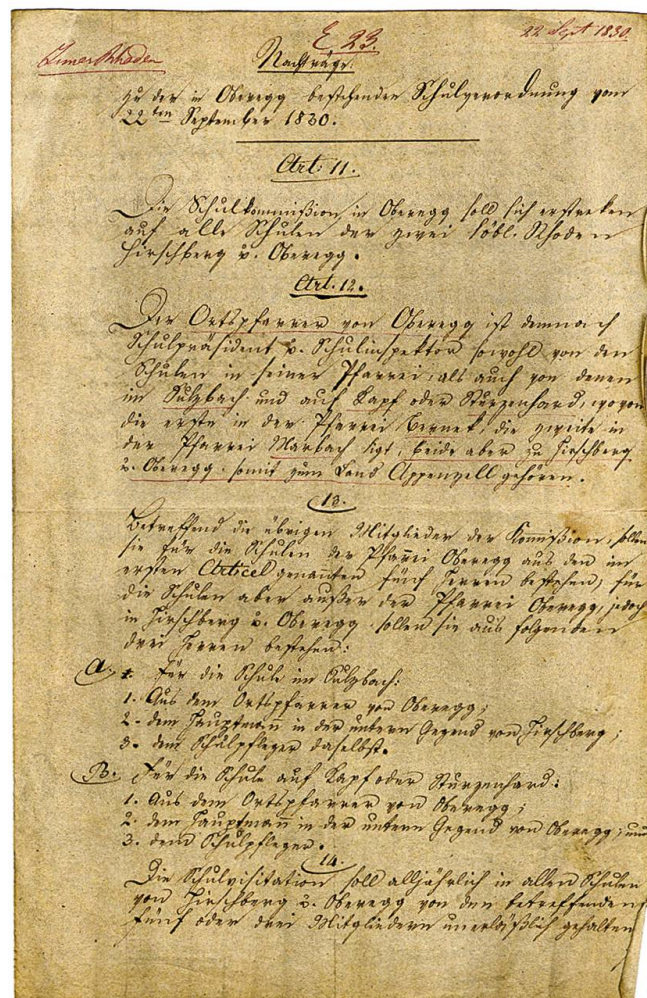 E. 23.
22 Sept 1830.
InnerRhoden
Nachträge
zu der in Oberegg bestehenden Schulverordnung vom
22ten September 1830.
Art. 11.
Die Schulkommißion in Oberegg soll sich erstreken
auf alle Schulen der zwei löbl. Rhoden
Hirschberg u. Oberegg.
Art. 12.
Der Ortspfarrer von Oberegg ist demnach
Schulpräsident u. Schulinspektor sowohl von den
Schulen in seiner Pfarrei, als auch von denen
im Sulzbach und auf Kapf oder Sturzenhard, wovon
die erste in der Pfarrei Bernek, die zweite in
der Pfarrei Marbach ligt, beide aber zu Hirschberg
u. Oberegg somit zum Land Appenzell gehören.
13.
Betreffend die übrigen Mitglieder der Komißion, sollen
sie für die Schulen der Pfarrei Oberegg aus den im
ersten Articel genannten fünf Herren bestehen, für
die Schulen aber außer der Pfarrei Oberegg, jedoch
in Hirschberg u. Oberegg sollen sie aus folgenden
drei Herren bestehen:
A. Für die Schule im Sulzbach:
1. Aus dem Ortspfarrer von Oberegg;
2. dem Hauptmann in der untern Gegend von Hirschberg;
3. dem Schulpfleger daselbst.
B. Für die Schule auf Kapf oder Sturzenhard:
1. Aus dem Ortspfarrer von Oberegg;
2. dem Hauptmann in der untern Gegend von Oberegg; und
3. dem Schulpfleger.
14.
Die Schulvisitation soll alljährlich in allen Schulen
von Hirschberg u. Oberegg von den betreffenden
fünf oder drei Mitgliedern unerläßlich gehalten